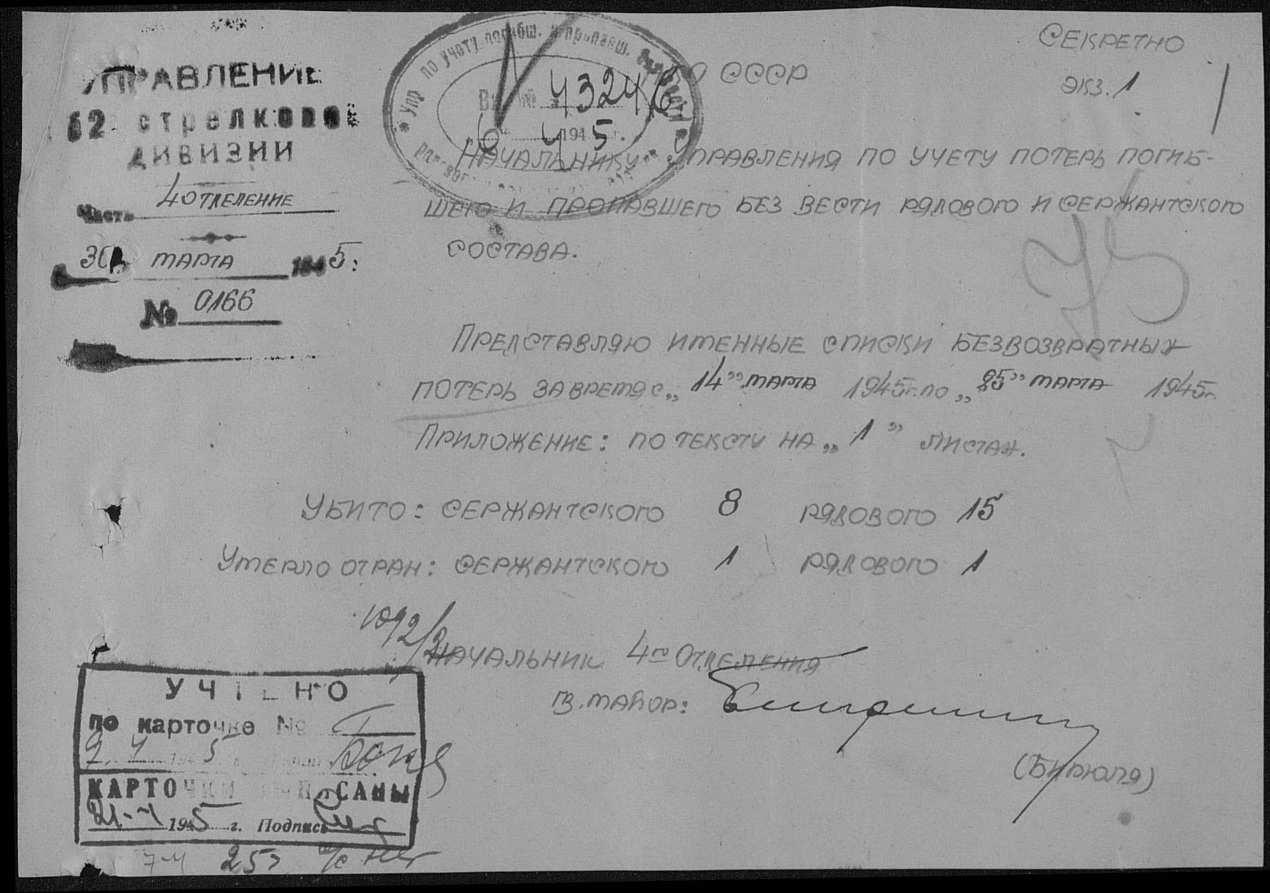 УПРАВЛЕНИЕ
62 стрелковой
ДИВИЗИИ
Часть 4 ОТДЕЛЕНИЕ
30 МАРТА 1945:
№ 0166
Упр по учету погибш. и пропавш.
Вх. № 43246
4 1945 г.
СЕКРЕТНО
ЭКЗ. 1
СССР
НАЧАЛЬНИКУ УПРАВЛЕНИЯ ПО УЧЕТУ ПОТЕРЬ ПОГИБ-
ШЕГО И ПРОПАВШЕГО БЕЗ ВЕСТИ РЯДОВОГО И СЕРЖАНТСКОГО
СОСТАВА.
75
ПРЕДСТАВЛЯЮ ИМЕННЫЕ СПИСКИ БЕЗВОЗВРАТНЫХ
ПОТЕРЬ ЗА ВРЕМЯ С „14" МАРТА 1945г. ПО „25" МАРТА 1945г.
ПРИЛОЖЕНИЕ: ПО ТЕКСТУ НА „1" ЛИСТАХ.
УБИТО: СЕРЖАНТСКОГО 8 РЯДОВОГО 15
УМЕРЛО ОТ РАН: СЕРЖАНТСКОГО 1 РЯДОВОГО 1
НАЧАЛЬНИК 4го ОТДЕЛЕНИЯ
МАЙОР:
(БИРЮЛЯ)
УЧТЕНО
по карточке №
9 4 1945
КАРТОЧКИ ВЫПИСАНЫ
21-4 1945 г. Подпись
7-4 25г